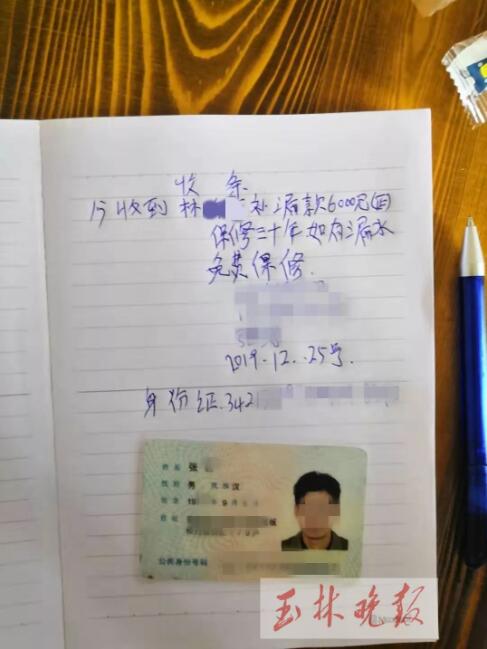 收条
今收到林 补漏款6000元(正)
保修三十年如有漏水
免费保修.
2019.12.25号.
身份证.342
姓名 张
性别 男 民族 汉
住址
公民身份号码
玉林晚报